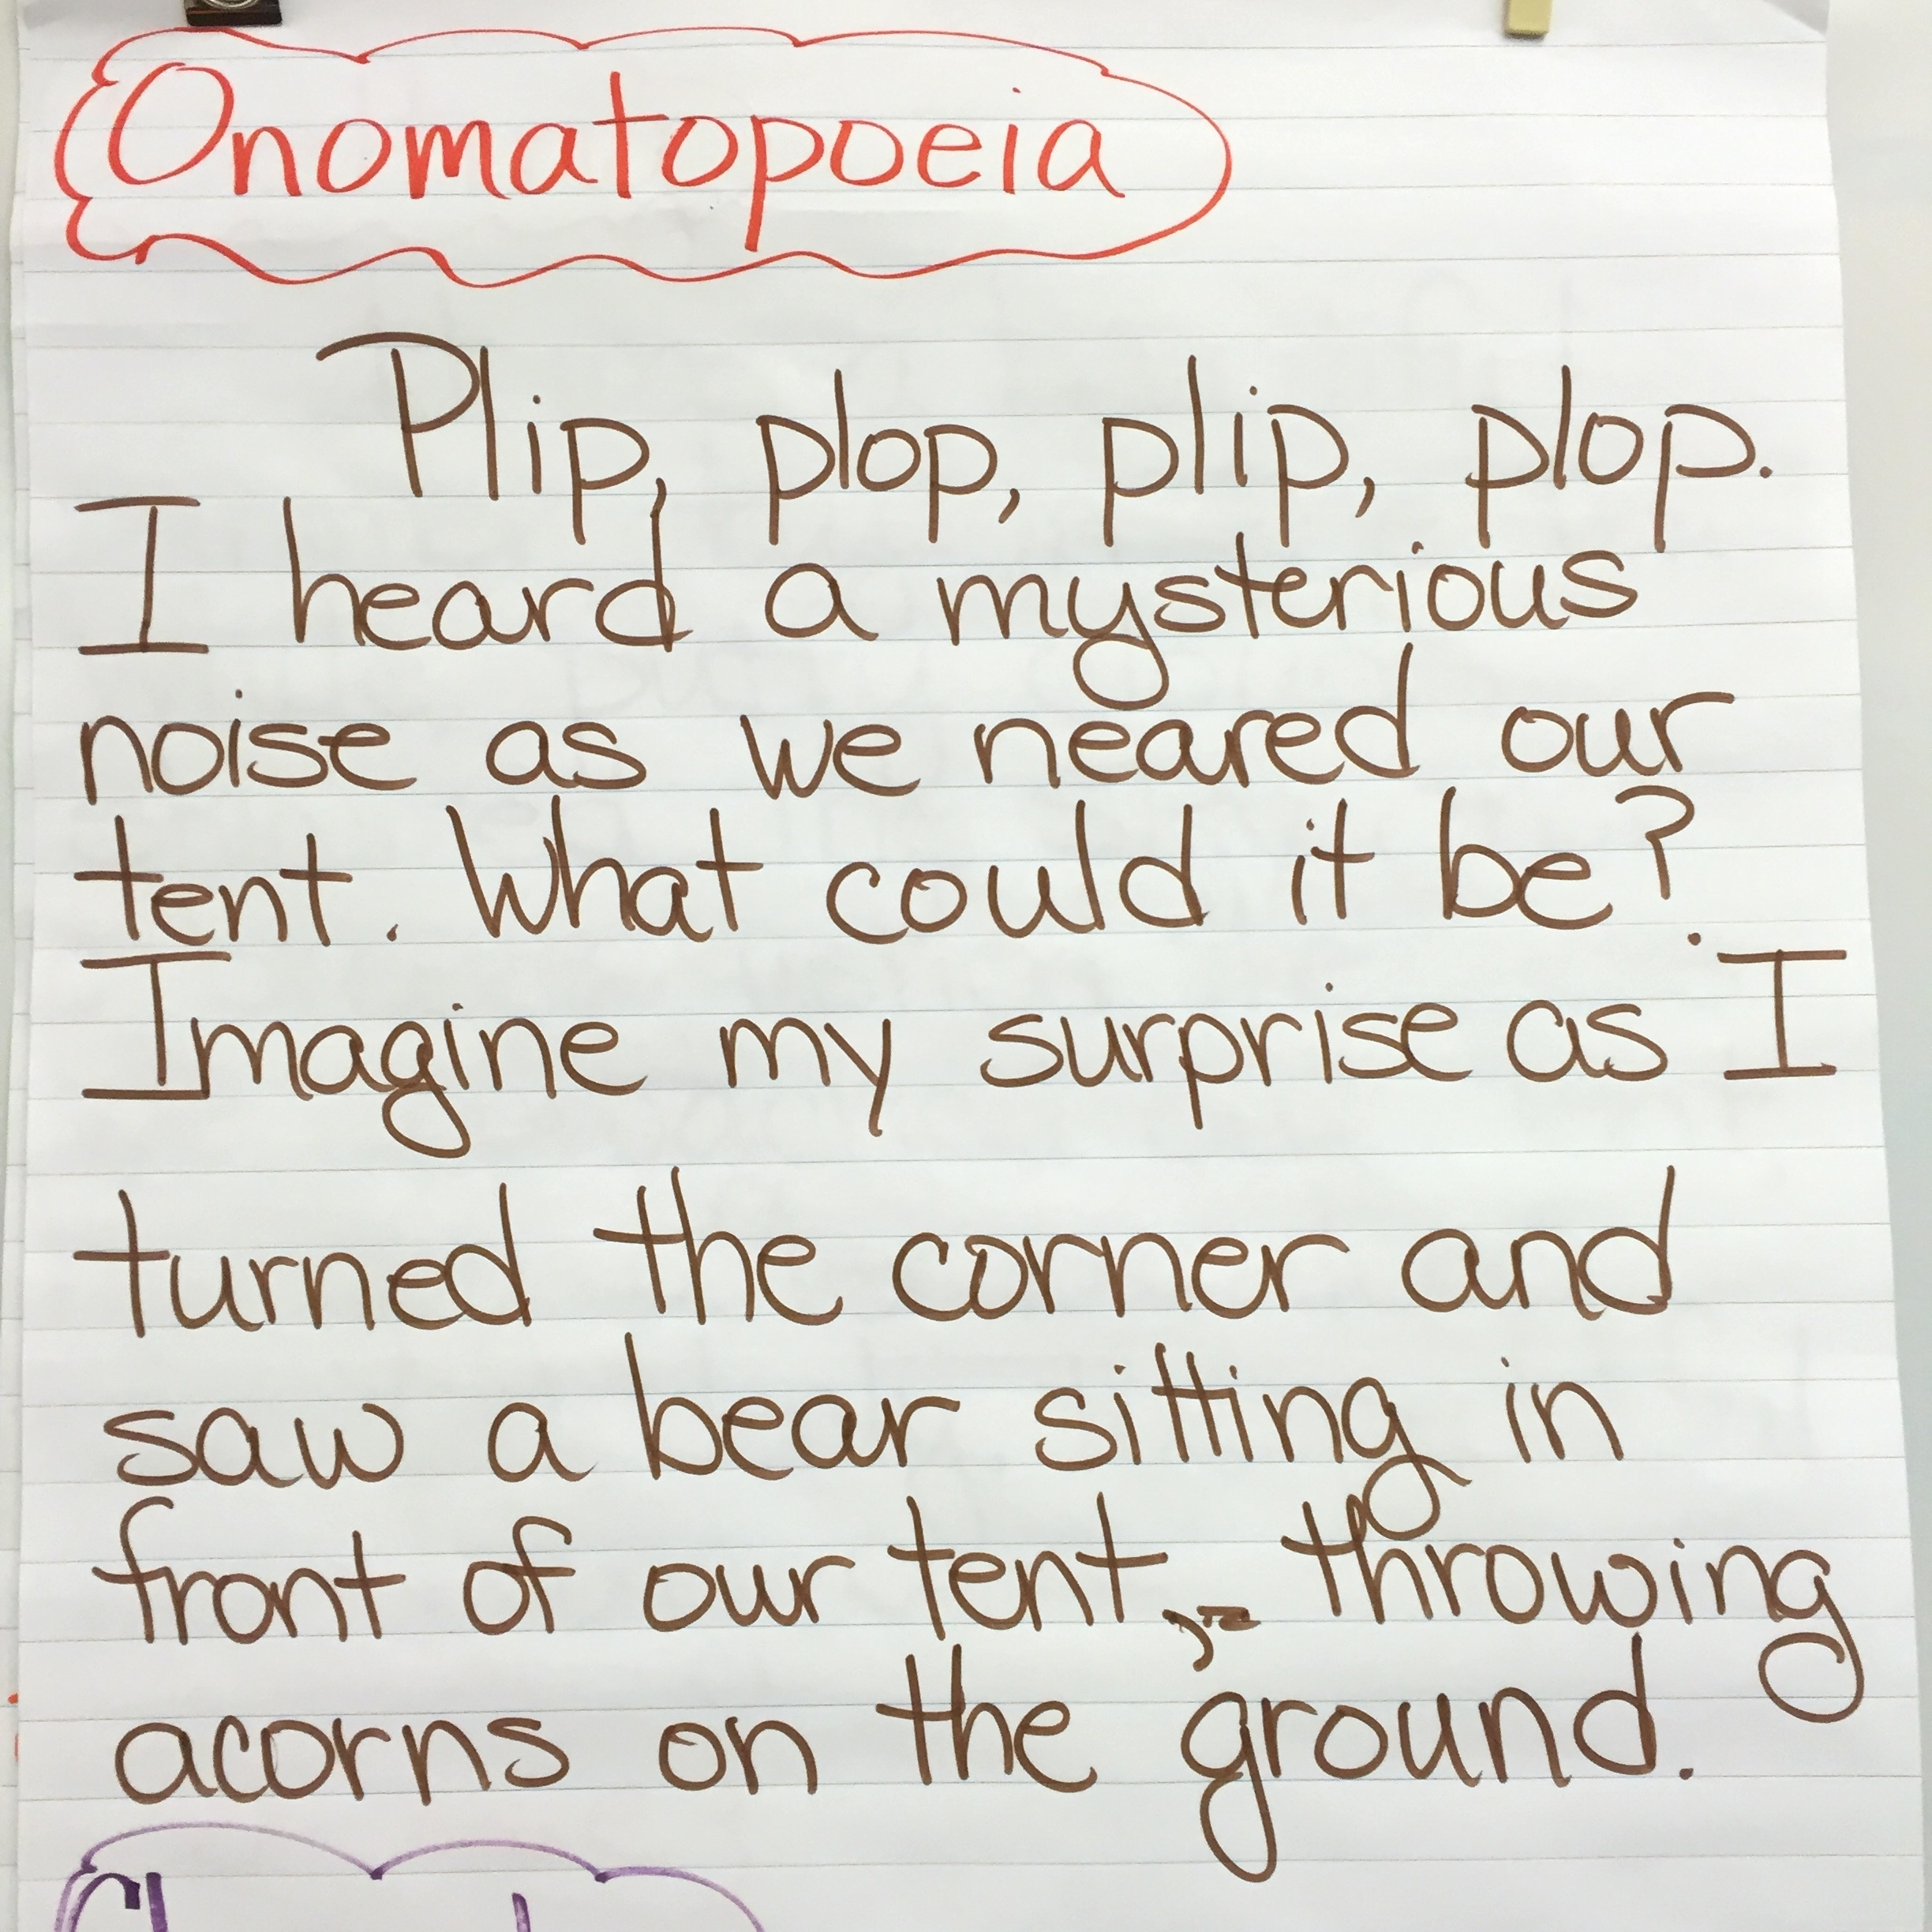 Onomatopoeia
Plip, plop, plip, plop.
I heard a mysterious
noise as we neared our
tent. What could it be?
Imagine my surprise as I
turned the corner and
saw a bear sitting in
front of our tent, throwing
acorns on the ground.